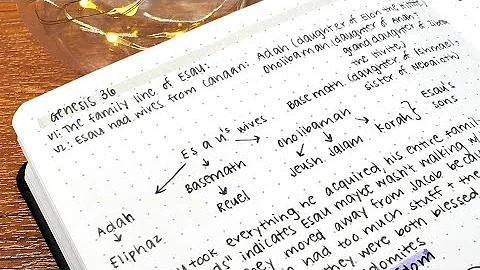 Genesis 36
v1: The family line of Esau:
v2: Esau had wives from Canaan: Adah (daughter of Elon the Hittite)
oholibamah (daughter of Anah;
grand daughter of Zibeon
the Hivite)
Basemath (daughter of Ishmael;
sister of Nebaioth)
Esau's wives
Adah
Eliphaz
Basemath
Reuel
oholibamah
Jeush Jalam Korah
Esau's
sons
took everything he acquired his entire family
indicates Esau maybe wasn't walking w/
they moved away from Jacob
had too much stuff + the
they were both blessed